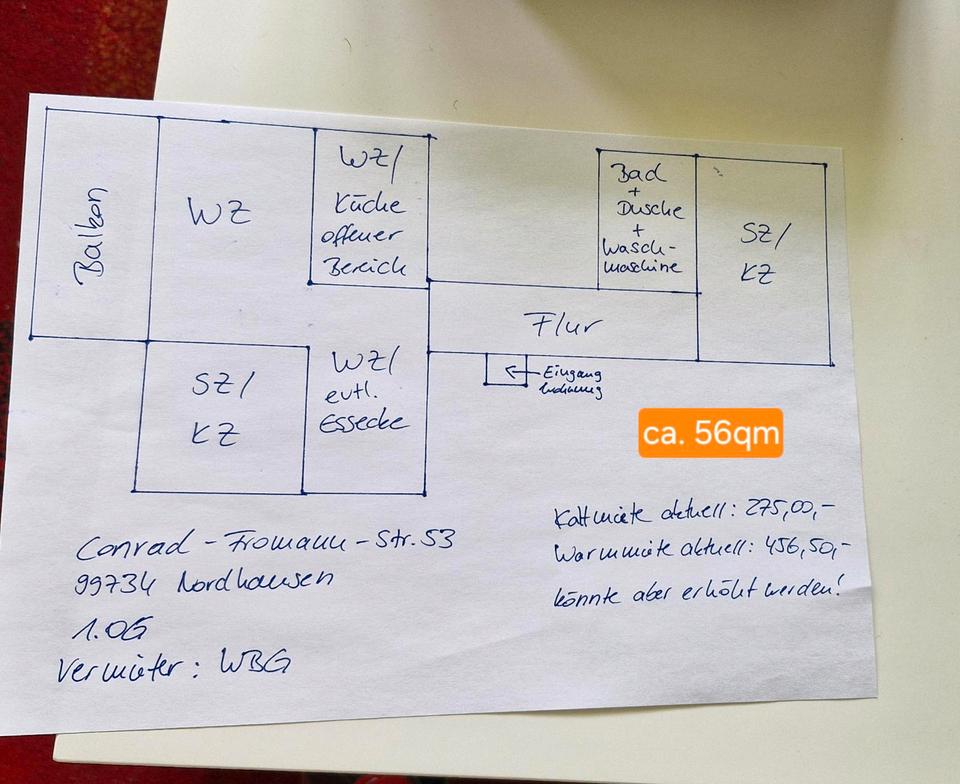 Balkon
WZ
WZ/
Küche
offener
Bereich
Bad
+
Dusche
+
Wasch-
maschine
SZ/
KZ
Flur
Eingang
Wohnung
SZ/
KZ
WZ/
evtl.
Essecke
ca. 56qm
Conrad-Fromann-Str. 53
99734 Nordhausen
1.OG
Vermieter: WBG
Kaltmiete aktuell: 275,00,-
Warmmiete aktuell: 456,50,-
könnte aber erhöht werden!